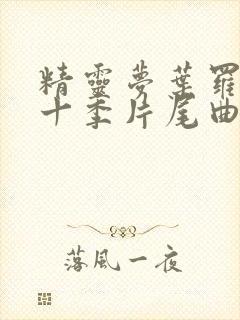 精靈夢葉羅
十季片尾曲
落風一夜